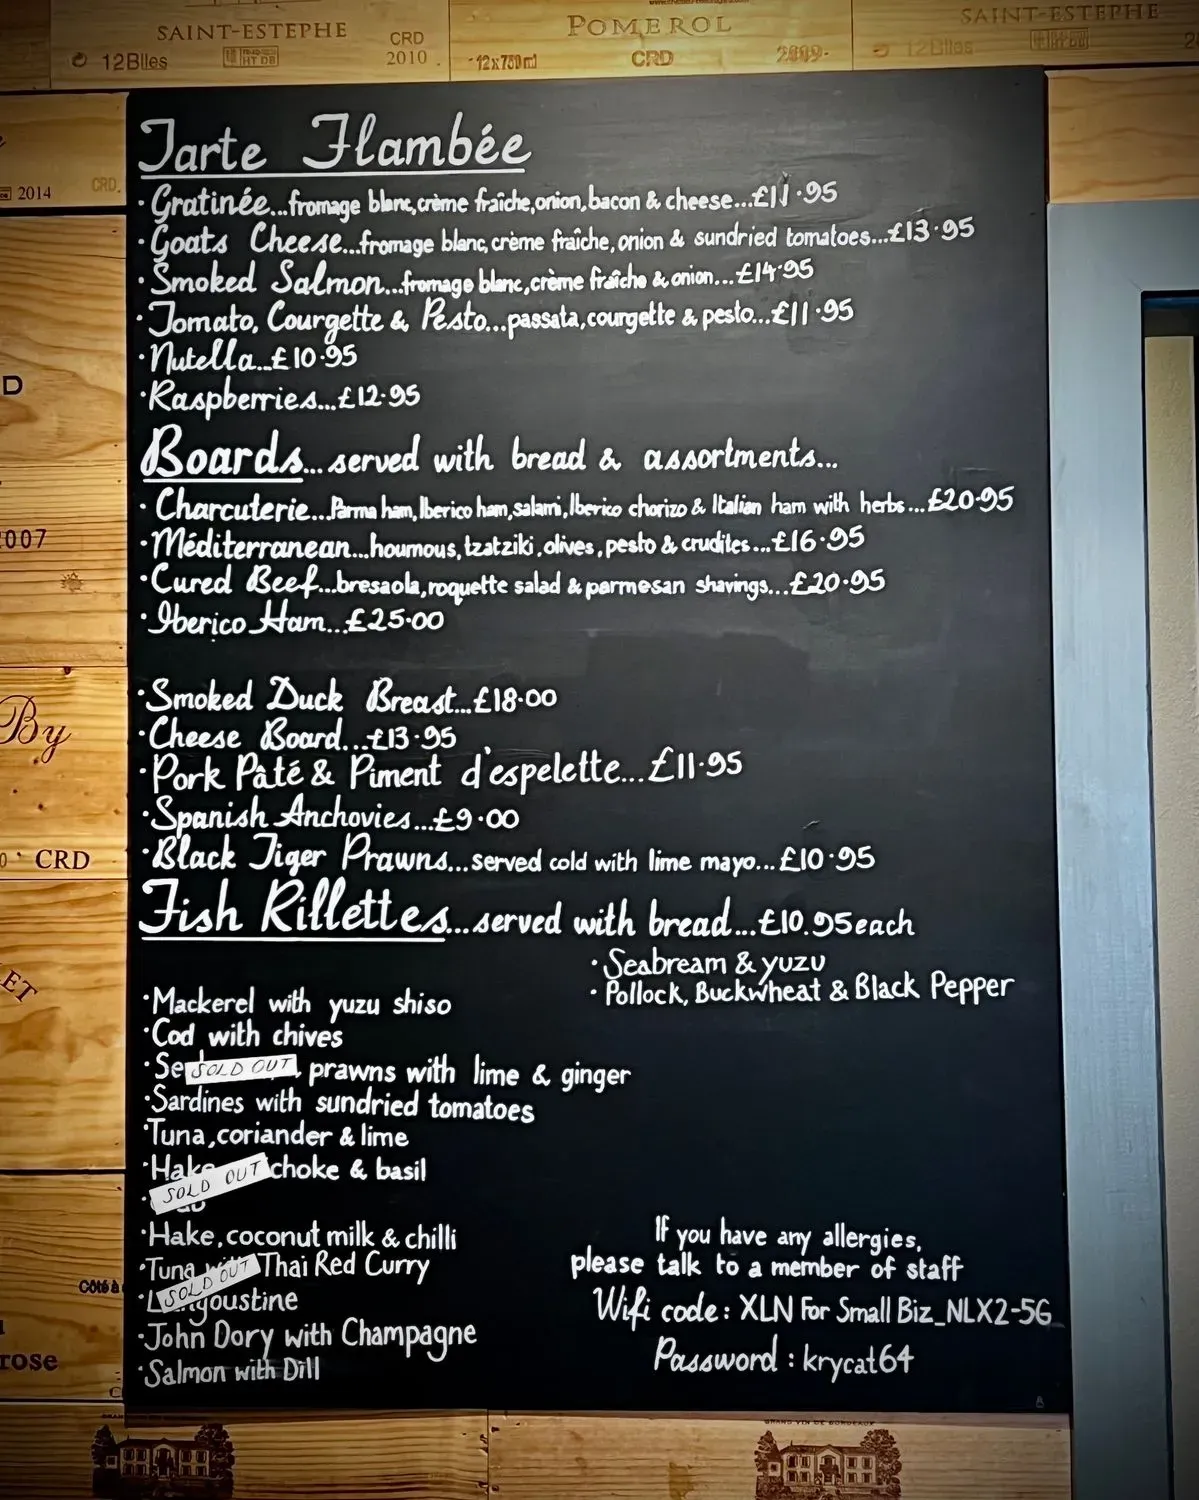 SAINT-ESTEPHE
12Blles
CRD
2010
POMEROL
12x750ml
CRD
2009
SAINT-ESTEPHE
12Blles
2014
CRD.
Tarte Flambée
·Gratinée...fromage blanc,crème fraîche,onion,bacon & cheese...£11·95
·Goats Cheese...fromage blanc,crème fraîche,onion & sundried tomatoes...£13·95
·Smoked Salmon...fromage blanc,crème fraîche & onion...£14·95
·Tomato, Courgette & Pesto...passata,courgette & pesto...£11·95
·Nutella...£10·95
·Raspberries...£12·95
Boards...served with bread & assortments...
·Charcuterie...Parma ham,Iberico ham,salami,Iberico chorizo & Italian ham with herbs...£20·95
·Méditerranean...houmous,tzatziki,olives,pesto & crudites...£16·95
·Cured Beef...bresaola,roquette salad & parmesan shavings...£20·95
·Iberico Ham...£25·00
·Smoked Duck Breast...£18·00
·Cheese Board...£13·95
·Pork Pâté & Piment d'espelette...£11·95
·Spanish Anchovies...£9·00
·Black Tiger Prawns...served cold with lime mayo...£10·95
Fish Rillettes...served with bread...£10.95each
·Seabream & yuzu
·Pollock, Buckwheat & Black Pepper
·Mackerel with yuzu shiso
·Cod with chives
·Se SOLD OUT prawns with lime & ginger
·Sardines with sundried tomatoes
·Tuna,coriander & lime
·Hake choke & basil
SOLD OUT
·Hake,coconut milk & chilli
·Tuna with Thai Red Curry
SOLD OUT
·L goustine
·John Dory with Champagne
·Salmon with Dill
If you have any allergies,
please talk to a member of staff
Wifi code: XLN For Small Biz_NLX2-5G
Password : krycat64
D
2007
By
CRD
ET
Côté à
rose